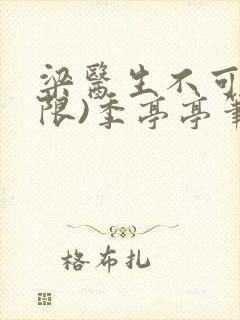 梁醫生不可
限)季亭亭筆
格布扎